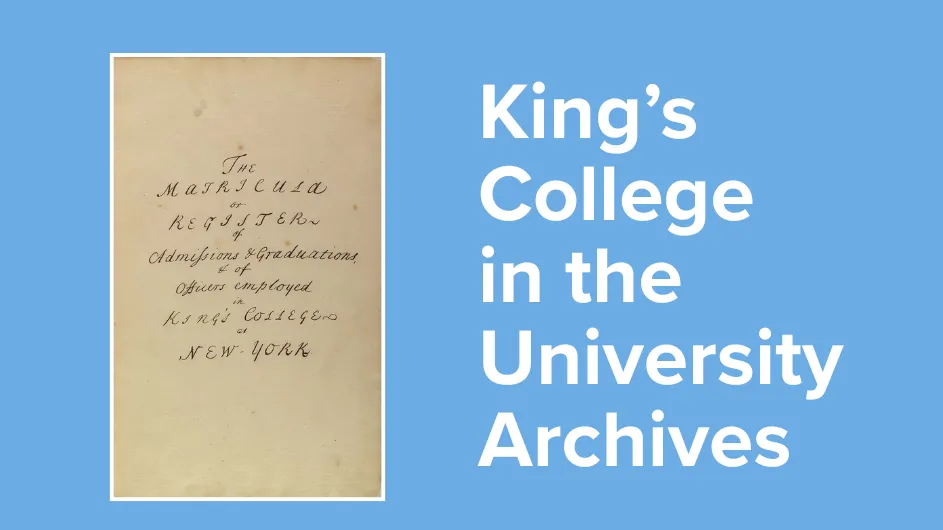 THE
MATRICULA
or
REGISTER
of
Admissions & Graduations,
& of
Officers employed
in
KING'S COLLEGE
at
NEW-YORK
King’s
College
in the
University
Archives